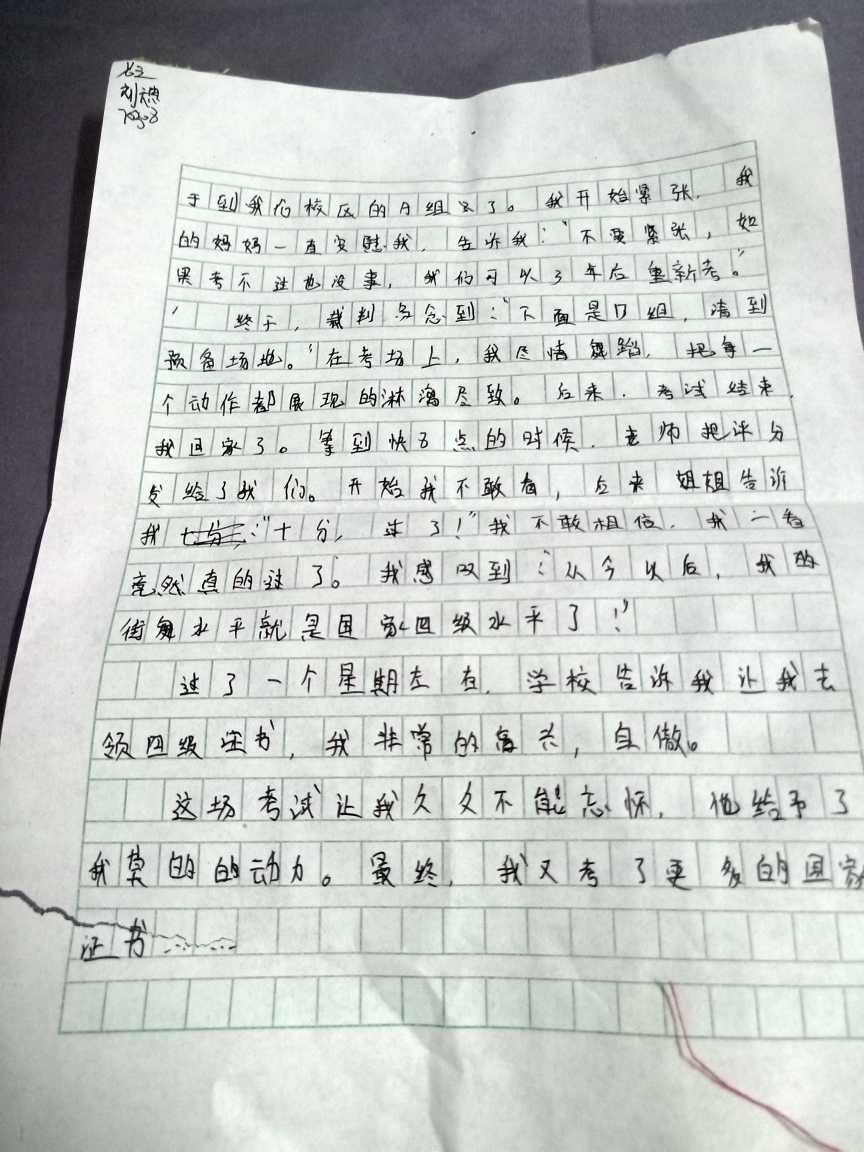 刘
于到我们校区的A组了。我开始紧张，我
的妈妈一直安慰我，告诉我：“不要紧张，如
果考不过也没事，我们可以3年后重新考。”
终于，裁判员念到：“下面是D组，请到
预备场地。”在考场上，我尽情舞蹈，把每一
个动作都展现的淋漓尽致。后来，考试结束，
我回家了。等到快8点的时候，老师把评分
发给了我们。开始我不敢看，后来姐姐告诉
我：“十分，过了！”我不敢相信，我一看
竟然真的过了。我感叹到：“从今以后，我的
街舞水平就是国家四级水平了！”
过了一个星期左右，学校告诉我让我去
领四级证书，我非常的高兴，自傲。
这场考试让我久久不能忘怀，他给予了
我莫的的动力。最终，我又考了更多的国家
证书……